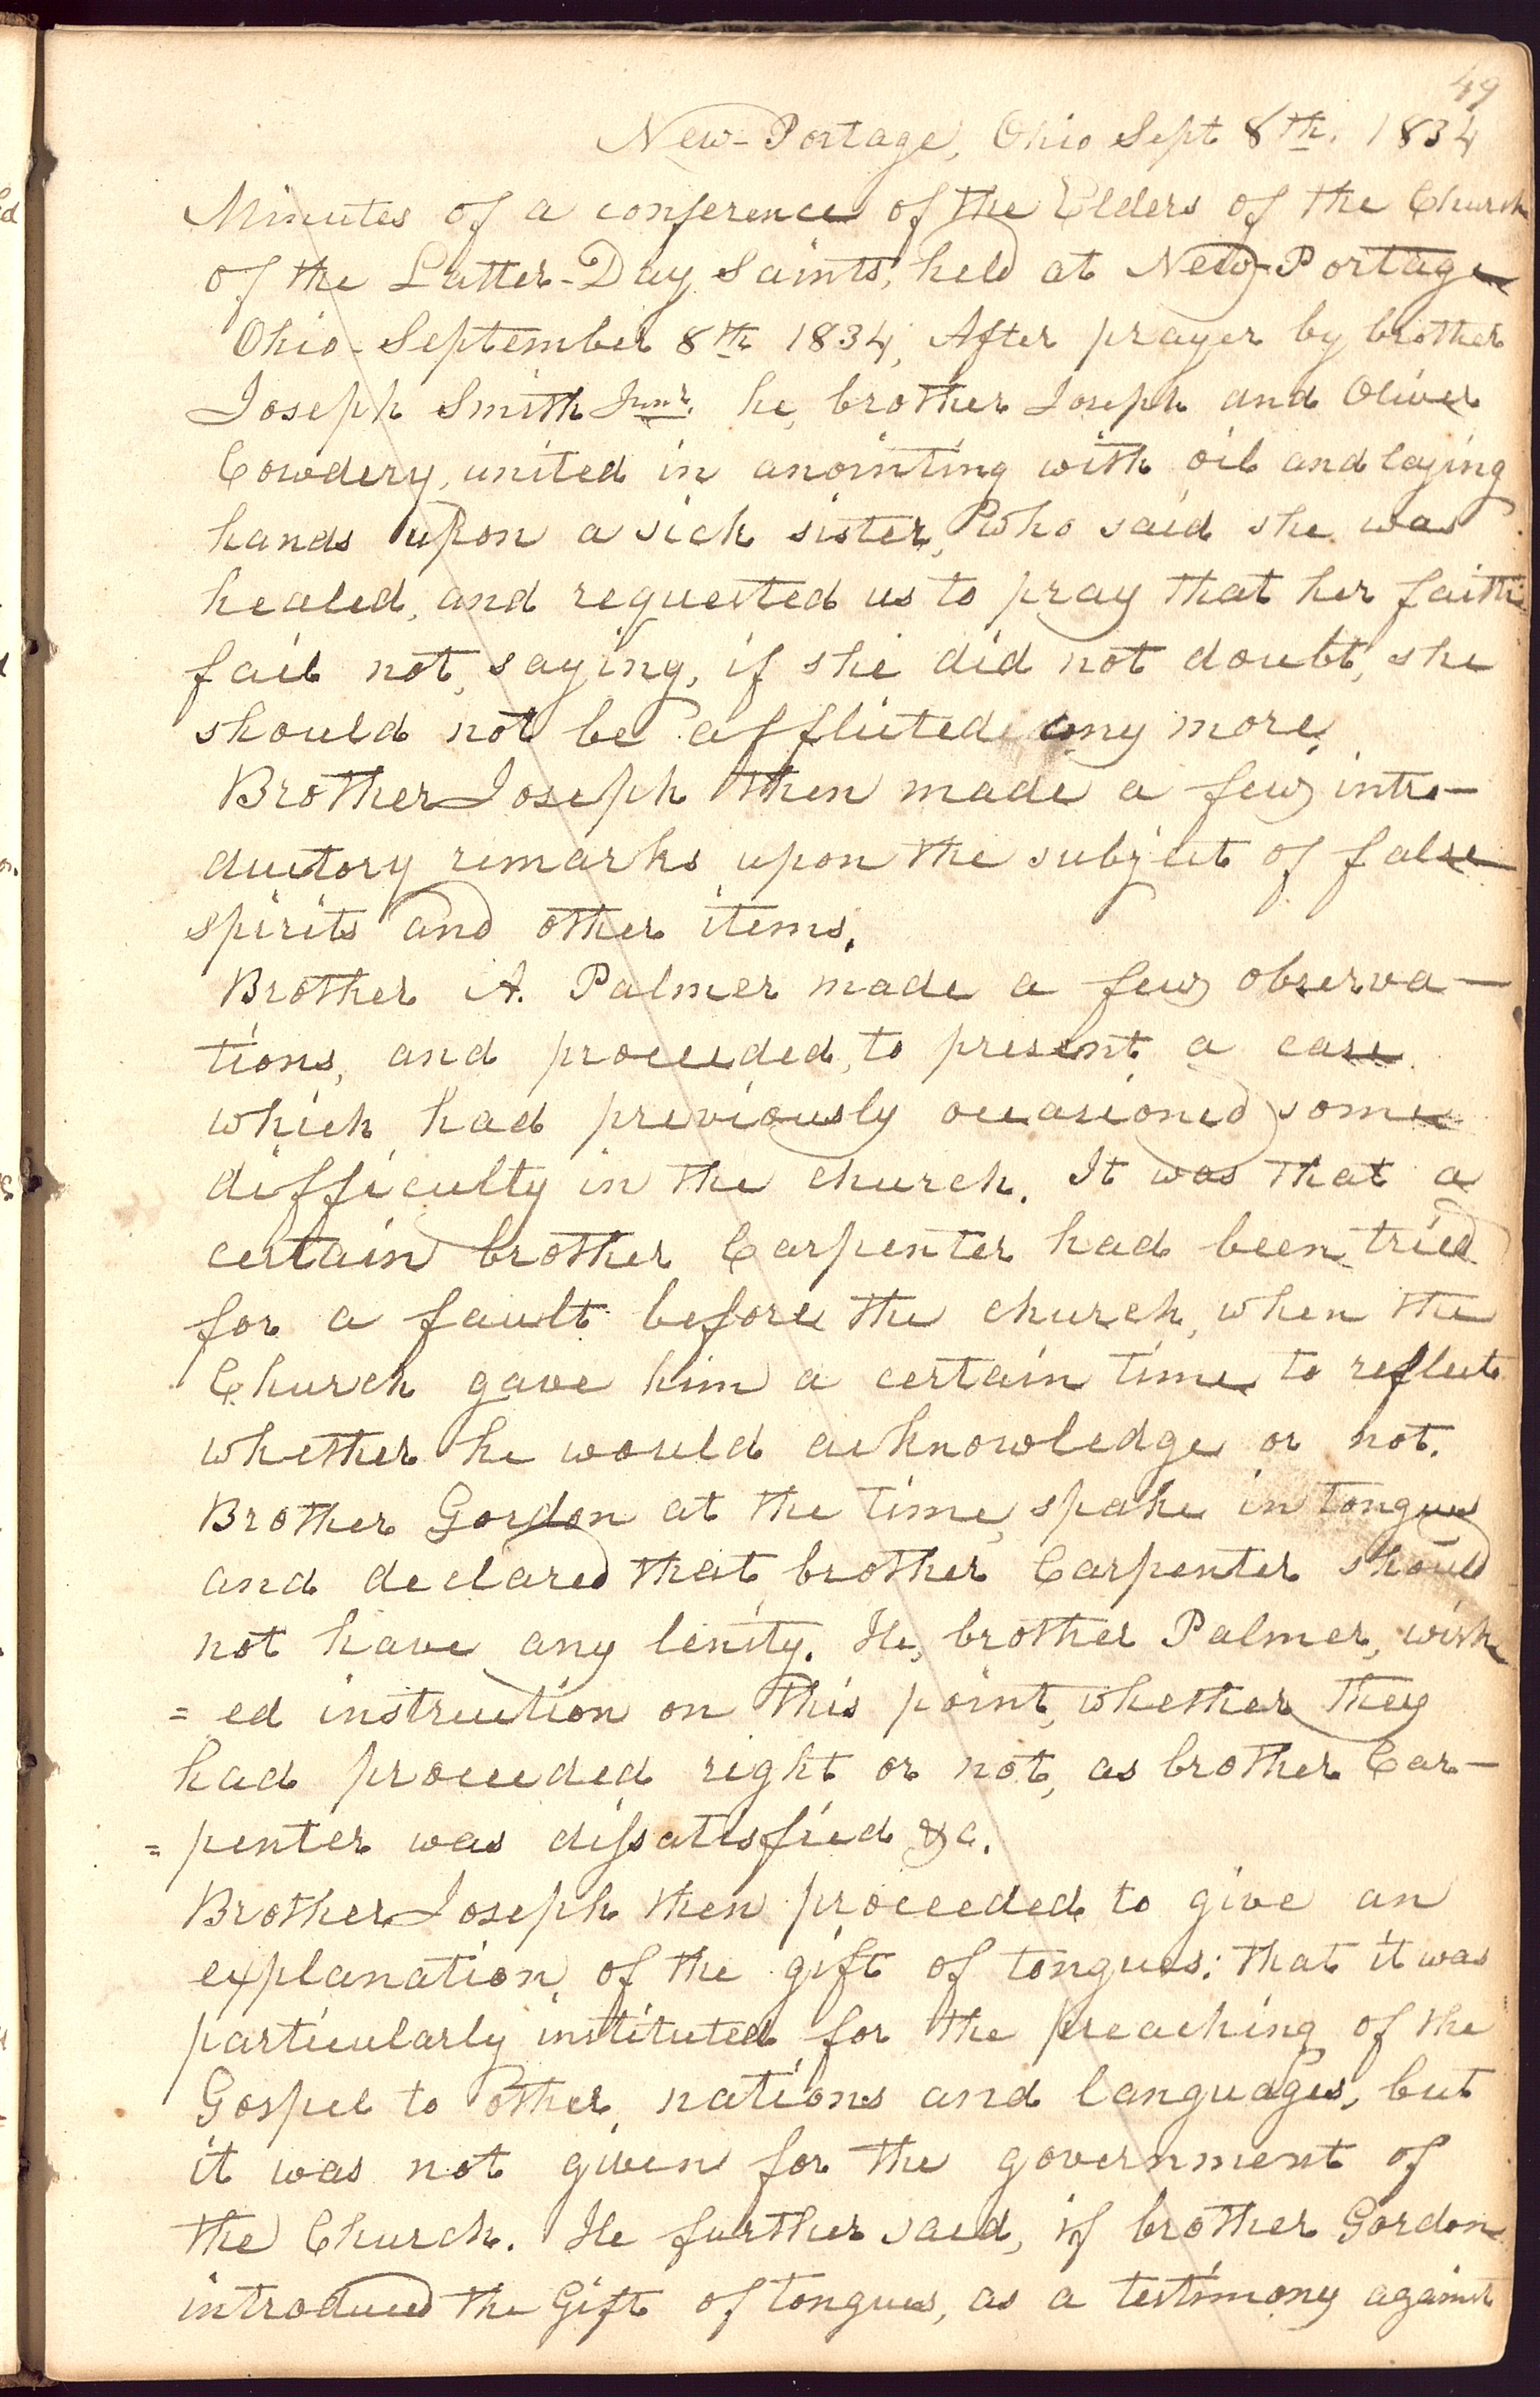 49
New-Portage, Ohio Sept 8th. 1834
Minutes of a conference of the Elders of the Church
of the Latter-Day Saints, held at New-Portage
Ohio-September 8th 1834, After prayer by brother
Joseph Smith Junr. he, brother Joseph and Oliver
Cowdery, united in anointing with oil and laying
hands upon a sick sister, who said she was
healed, and requested us to pray that her faith
fail not, saying, if she did not doubt, she
should not be afflicted any more.
Brother Joseph then made a few intro-
ductory remarks upon the subject of false
spirits and other items.
Brother A. Palmer made a few observa-
tions, and proceeded, to present a case
which had previously occasioned some
difficulty in the church. It was that a
certain brother Carpenter had been tried
for a fault before the church, when the
Church gave him a certain time to reflect
whether he would acknowledge or not.
Brother Gordon at the time, spake in tongues
and declared that brother Carpenter should
not have any lenity. He, brother Palmer, wish
= ed instruction on this point, whether they
had proceeded right or not, as brother Car-
= penter was dissatisfied &c.
Brother Joseph then proceeded to give an
explanation of the gift of tongues: that it was
particularly instituted for the preaching of the
Gospel to other nations and languages, but
it was not given for the government of
the Church. He further said, if brother Gordon
introduced the Gift of tongues, as a testimony against